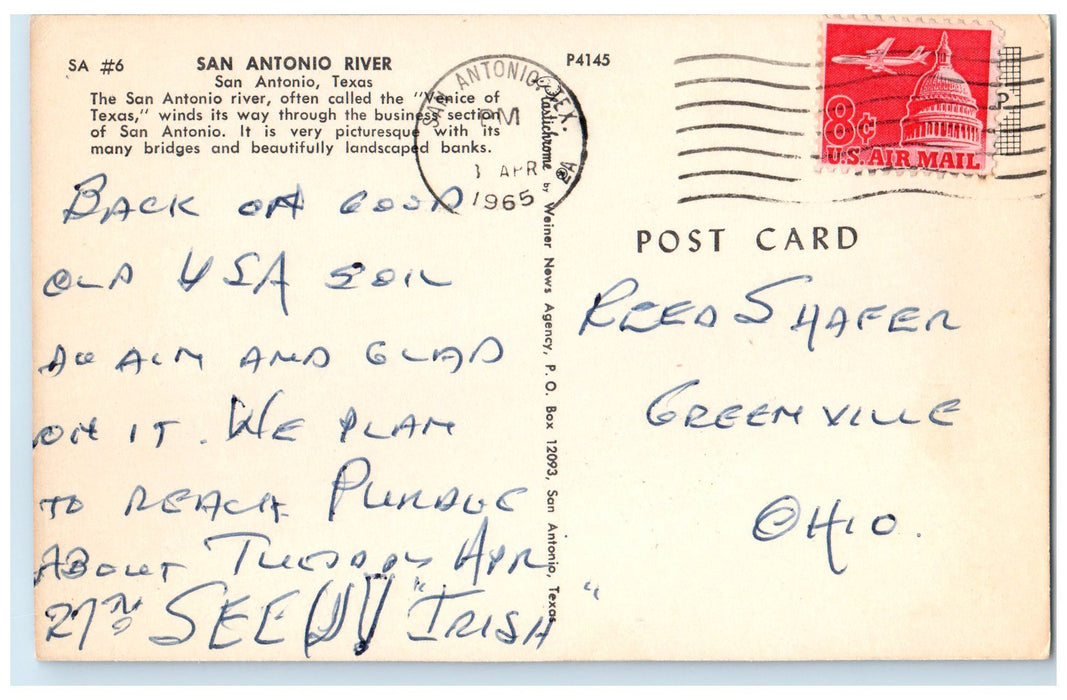 SA #6
SAN ANTONIO RIVER
San Antonio, Texas
The San Antonio river, often called the "Venice of
Texas," winds its way through the business section
of San Antonio. It is very picturesque with its
many bridges and beautifully landscaped banks.
P4145
SAN ANTONIO, TEX.
PM
1 APR
1965
8¢
U.S. AIR MAIL
Plastichrome ® by Weiner News Agency, P. O. Box 12093, San Antonio, Texas
POST CARD
BACK ON GOOD
OLD USA SOIL
AGAIN AND GLAD
ON IT. WE PLAN
TO REACH PURDUE
ABOUT TUESDAY APR
27TH SEE "IRISH"
REED SHAFER
GREENVILLE
OHIO.